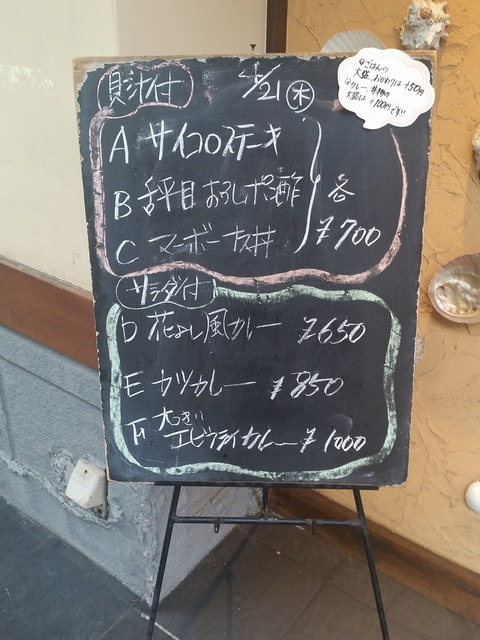 貝汁付
4/21 木
@ごはんの
大盛、おかわりは+50円
@カレー、丼物の
大盛は+100円です!!
A サイコロステーキ
B 舌平目おろしポン酢
C マーボーナス丼
各
¥700
サラダ付
D 花よし風カレー ¥650
E カツカレー ¥850
F 大っきい
エビフライカレー ¥1000